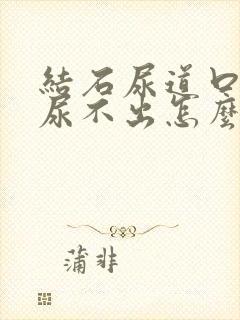 結石尿道口
尿不出怎麼
蒲非